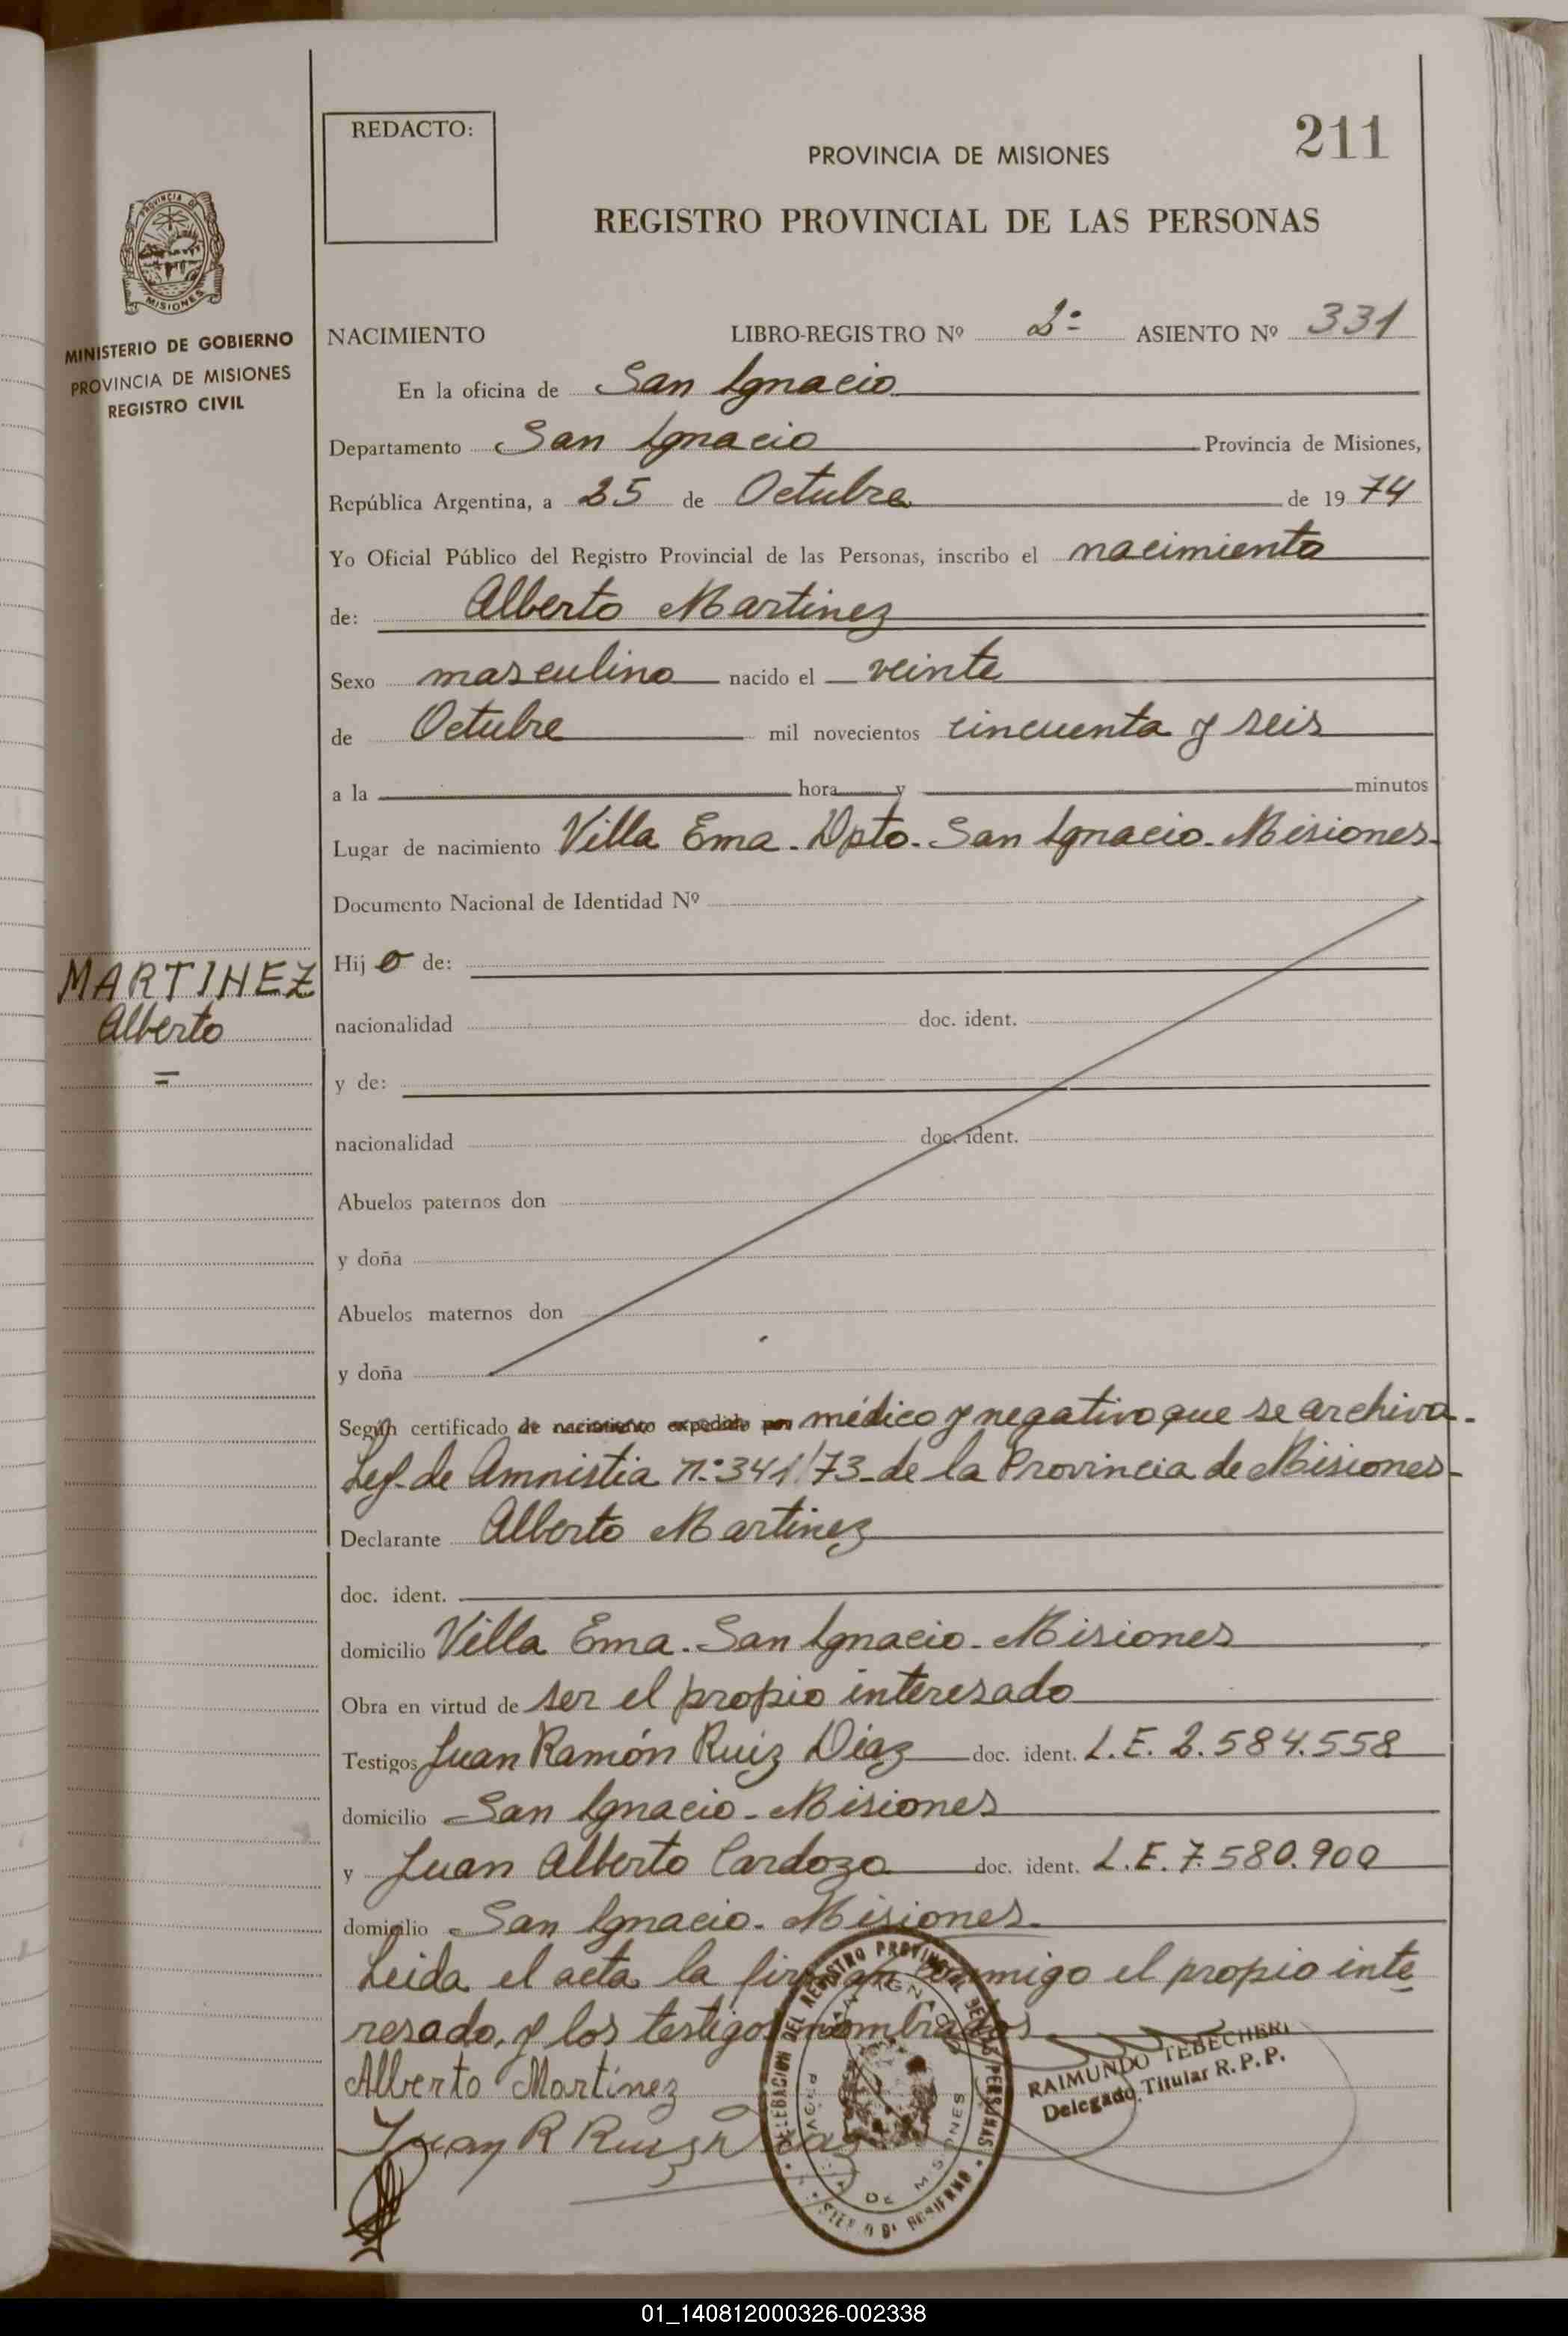 REDACTO:
211
PROVINCIA DE MISIONES
REGISTRO PROVINCIAL DE LAS PERSONAS
PROVINCIA DE
MISIONES
MINISTERIO DE GOBIERNO
PROVINCIA DE MISIONES
REGISTRO CIVIL
NACIMIENTO LIBRO-REGISTRO Nº 2º ASIENTO Nº 331
En la oficina de San Ignacio
Departamento San Ignacio Provincia de Misiones,
República Argentina, a 25 de Octubre de 1974
Yo Oficial Público del Registro Provincial de las Personas, inscribo el nacimiento
de: Alberto Martinez
Sexo masculino nacido el veinte
de Octubre mil novecientos cincuenta y seis
a la hora y minutos
Lugar de nacimiento Villa Ema. Dpto. San Ignacio. Misiones.
Documento Nacional de Identidad Nº
MARTINEZ
Alberto
=
Hijo de:
nacionalidad doc. ident.
y de:
nacionalidad doc. ident.
Abuelos paternos don
y doña
Abuelos maternos don
y doña
Según certificado de nacimiento expedido por médico y negativo que se archiva.
Ley de Amnistia n.º 341/73 de la Provincia de Misiones.
Declarante Alberto Martinez
doc. ident.
domicilio Villa Ema. San Ignacio. Misiones
Obra en virtud de ser el propio interesado
Testigos Juan Ramón Ruiz Díaz doc. ident. L.E. 2.584.558
domicilio San Ignacio. Misiones
y Juan Alberto Cardozo doc. ident. L.E. 7.580.900
domicilio San Ignacio. Misiones.
Leida el acta la firman conmigo el propio inte
resado, y los testigos nombrados
Alberto Martinez
Juan R Ruiz Diaz
DELEGACION DEL REGISTRO PROVINCIAL DE LAS PERSONAS
PROVINCIA DE MISIONES
RAIMUNDO TEBECHERI
Delegado Titular R. P. P.
01_140812000326-002338